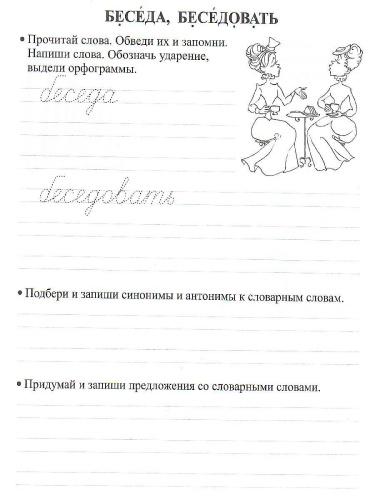 БЕСЕ́ДА, БЕСЕ́ДОВАТЬ
• Прочитай слова. Обведи их и запомни.
Напиши слова. Обозначь ударение,
выдели орфограммы.
беседа
беседовать
• Подбери и запиши синонимы и антонимы к словарным словам.
• Придумай и запиши предложения со словарными словами.